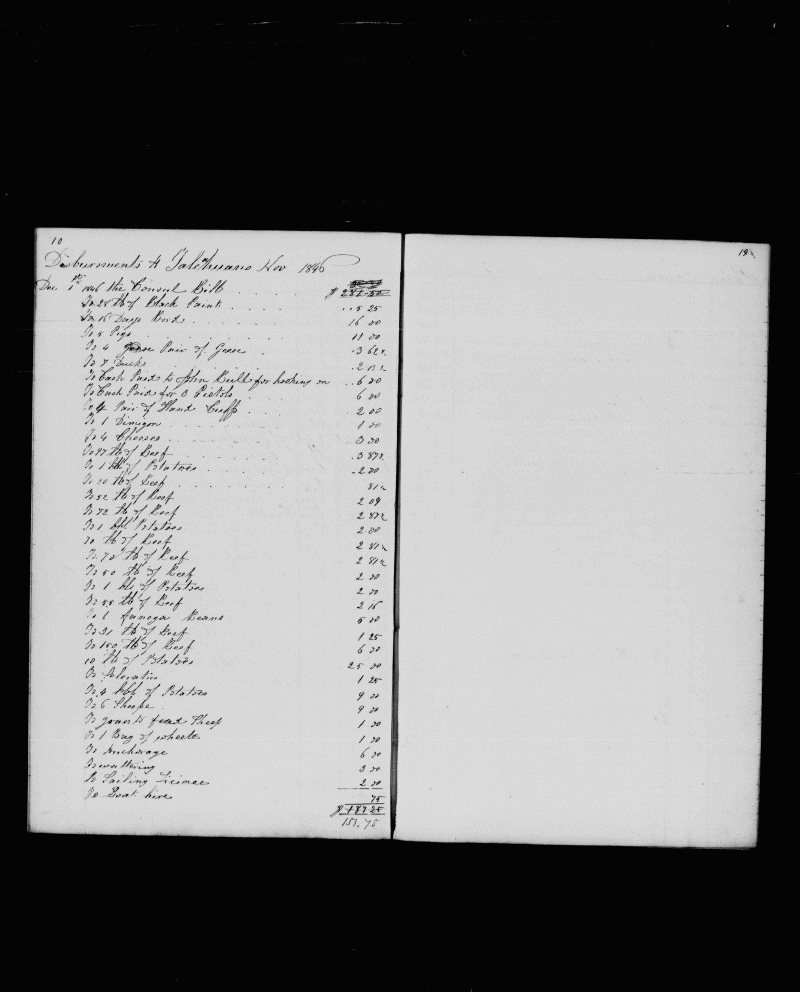 10
19
Disbursments at Talcahuano Nov 1846
Dec 1st 1846 the Consul Bill $ 281.50
To 28 lb of Black Paint 5 25
To 16 Days Bord 16 00
To 5 Pigs 11 00
To 4 Pair of Geese 3 62½
To 7 Ducks
To Cash Paid to John Bull for hooking on 6 00
To Cash Paid for 3 Pistols 6 00
To 4 Pair of Hand Cuffs 2 00
To 1 Dimigon 1 00
To 4 Cheeses 3 00
To 97 lb of Beef 3 87½
To 1 bbl of Potatoes 2 00
To 20 lb of Beef 81½
To 52 lb of Beef 2 09
To 72 lb of Beef 2 87½
To 1 bbl Potatoes 2 00
70 lb of Beef 2 81½
To 70 lb of Beef 2 81½
To 50 lb of Beef 2 00
To 1 bbl of Potatoes 2 00
To 55 lb of Beef 2 16
To 1 fanega Beans 5 00
To 31 lb of Beef 1 25
To 150 lb of Beef 6 00
10 lb of Potatoes 25 00
To Seleratus 1 25
To 4 bbl of Potatoes 9 00
To 6 Sheepe 9 00
To grass to feed Sheep 1 00
To 1 Bag of wheete 1 00
To Anchorage 6 00
To wattering 3 00
To Sailing Licince 2 00
To Boat hire 75
$ 187 25
151.75